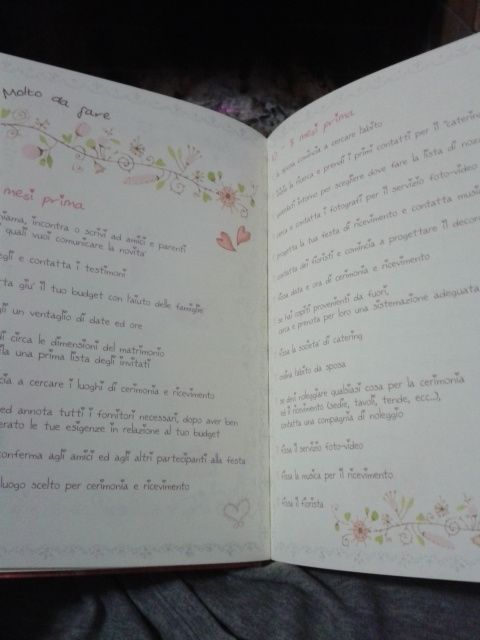 Molto da fare
mesi prima
incontra o scrivi ad amici e parenti
quali vuoi comunicare la novita'
e contatta i testimoni
giu' il tuo budget con l'aiuto delle famiglie
un ventaglio di date ed ore
circa le dimensioni del matrimonio
una prima lista degli invitati
a cercare i luoghi di cerimonia e ricevimento
ed annota tutti i fornitori necessari, dopo aver ben
le tue esigenze in relazione al tuo budget
conferma agli amici ed agli altri partecipanti alla festa
luogo scelto per cerimonia e ricevimento
mesi prima
la sposa comincia a cercare l'abito
la ricerca e prendi i primi contatti per il "catering
intorno per scegliere dove fare la lista di
cerca e contatta i fotografi per il servizio foto-video
progetta la tua festa di ricevimento e contatta
contatta dei fioristi e comincia a progettare il
fissa data e ora di cerimonia e ricevimento
se hai ospiti provenienti da fuori,
cerca e prenota per loro una sistemazione adeguata
fissa la societa' di catering
ordina l'abito da sposa
se devi noleggiare qualsiasi cosa per la cerimonia
ed il ricevimento (sedie, tavoli, tende, ecc...),
contatta una compagnia di noleggio
fissa il servizio foto-video
fissa la musica per il ricevimento
fissa il fiorista